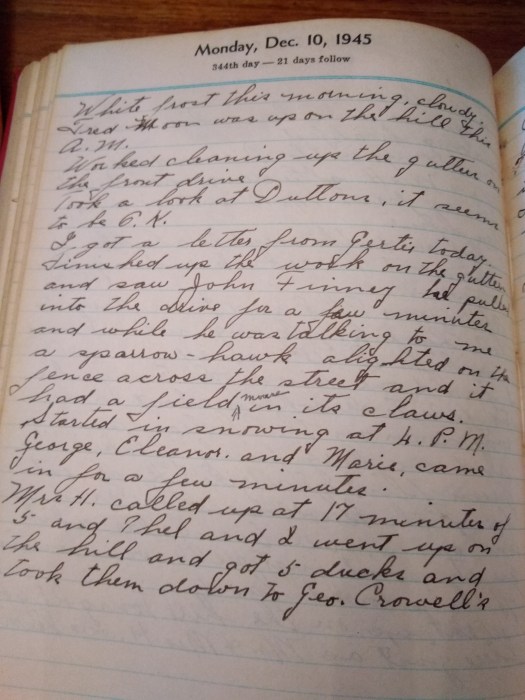 Monday, Dec. 10, 1945
344th day — 21 days follow
White frost this morning, cloudy.
Fred Moon was up on the hill this
A.M.
Worked cleaning up the gutter on
the front drive
Took a look at Duttons, it seems
to be O.K.
I got a letter from Gertie today.
Finished up the work on the gutter
and saw John Finney he pulled
into the drive for a few minutes
and while he was talking to me
a sparrow-hawk alighted on the
fence across the street and it
had a field mouse in its claws.
Started in snowing at 4. P.M.
George, Eleanor. and Marie, came
in for a few minutes.
Mrs H. called up at 17 minutes of
5 and Thel and I went up on
the hill and got 5 ducks and
took them down to Geo. Crowell's